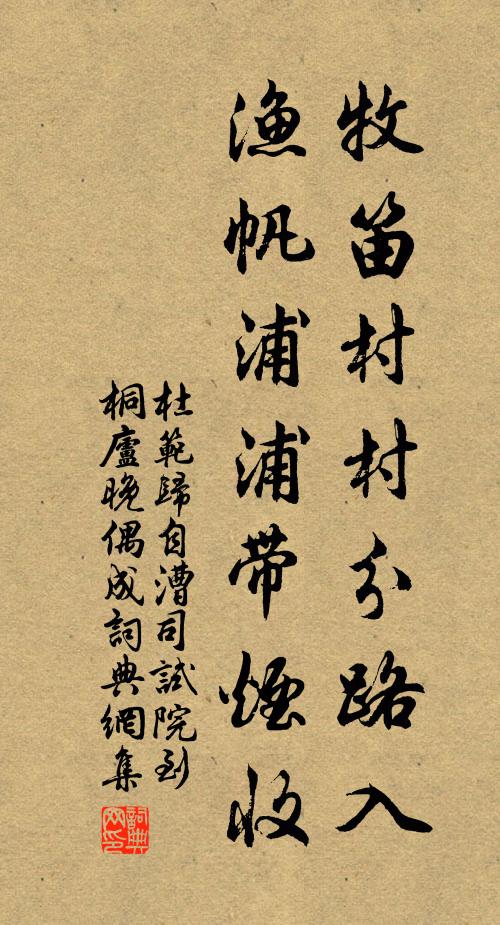 牧笛村村分路入
渔帆浦浦带烟收
杜範歸自漕司試院到
桐廬晚偶成詞典網集
詞典网印